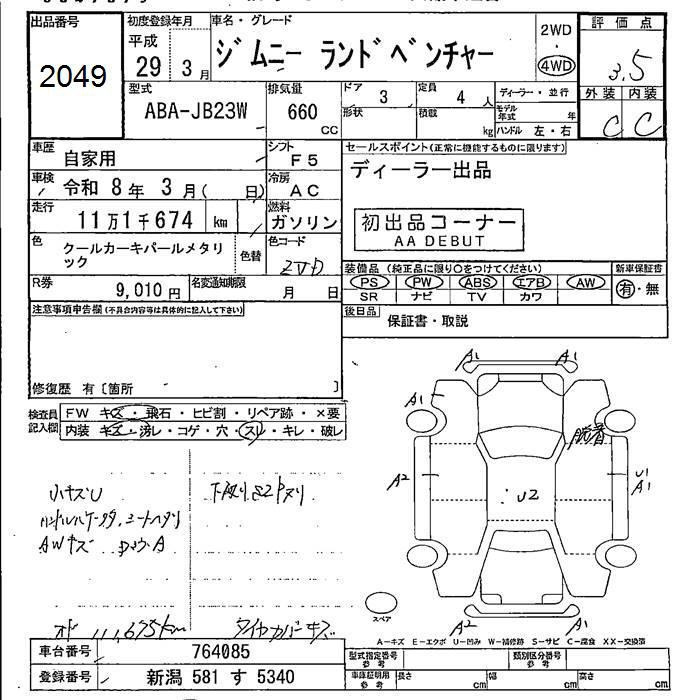 出品番号
2049
初度登録年月
平成
29 3月
車名・グレード
ジムニー ランドベンチャー
2WD
・
4WD
評価点
3.5
外装 内装
C C
型式
ABA-JB23W
排気量
660
cc
ドア
3
形状
定員
4 人
積載
kg
ディーラー・並行
モデル年式 年
ハンドル 左・右
車歴
自家用
シフト
F5
車検
令和 8年 3月( 日)
冷房
AC
走行
11万1千674 km
燃料
ガソリン
色
クールカーキパールメタリック
色替
色コード
ZVD
R券
9,010 円
名変通知期限
月 日
セールスポイント(正常に機能するものに限ります)
ディーラー出品
初出品コーナー
AA DEBUT
装備品 (純正品に限り○をつけてください)
PS PW ABS エアB AW
SR ナビ TV カワ
新車保証書
有・無
後日品
保証書・取説
注意事項申告欄(不具合内容等は具体的に記入して下さい)
修復歴 有〔箇所 〕
検査員記入欄
FW キズ・飛石・ヒビ割・リペア跡・×要
内装 キズ・汚レ・コゲ・穴・スリ・キレ・破レ
小キズU
AWキズ
111,675km
タイヤカバーキズ
A1 A1
A1
脱着
A2
U2
U1
A1
A2 A1
スペア
A−キズ E−エクボ U−凹み W−補修跡 S−サビ C−腐食 XX−交換済
車台番号
764085
登録番号
新潟 581 す 5340
型式指定番号
参考
類別区分番号
参考
車庫証明用
参考
長さ cm
幅 cm
高さ cm